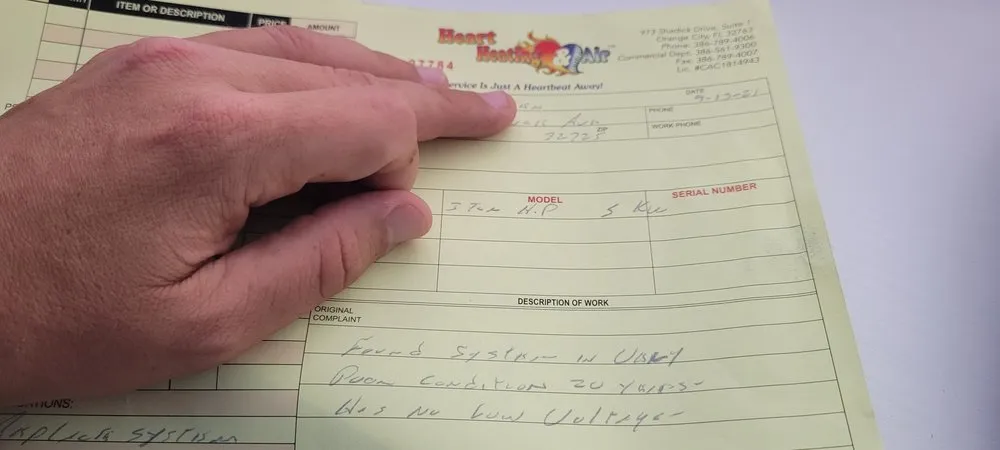 ITEM OR DESCRIPTION
PRICE
AMOUNT
Heart
Heating & Air
913 Shadick Drive, Suite 1
Orange City, FL 32763
Phone: 386-789-4006
Commercial Dept. 386-561-9300
Fax: 386-789-4007
Lic. #CAC1814943
07784
ervice Is Just A Heartbeat Away!
DATE
9-13-21
PHONE
ZIP
32725
WORK PHONE
MODEL
SERIAL NUMBER
3 Ton H.P 5 Kw
DESCRIPTION OF WORK
ORIGINAL
COMPLAINT
Found System in Very
Poor condition 20 years-
Has No Low Voltage-
ATIONS:
System